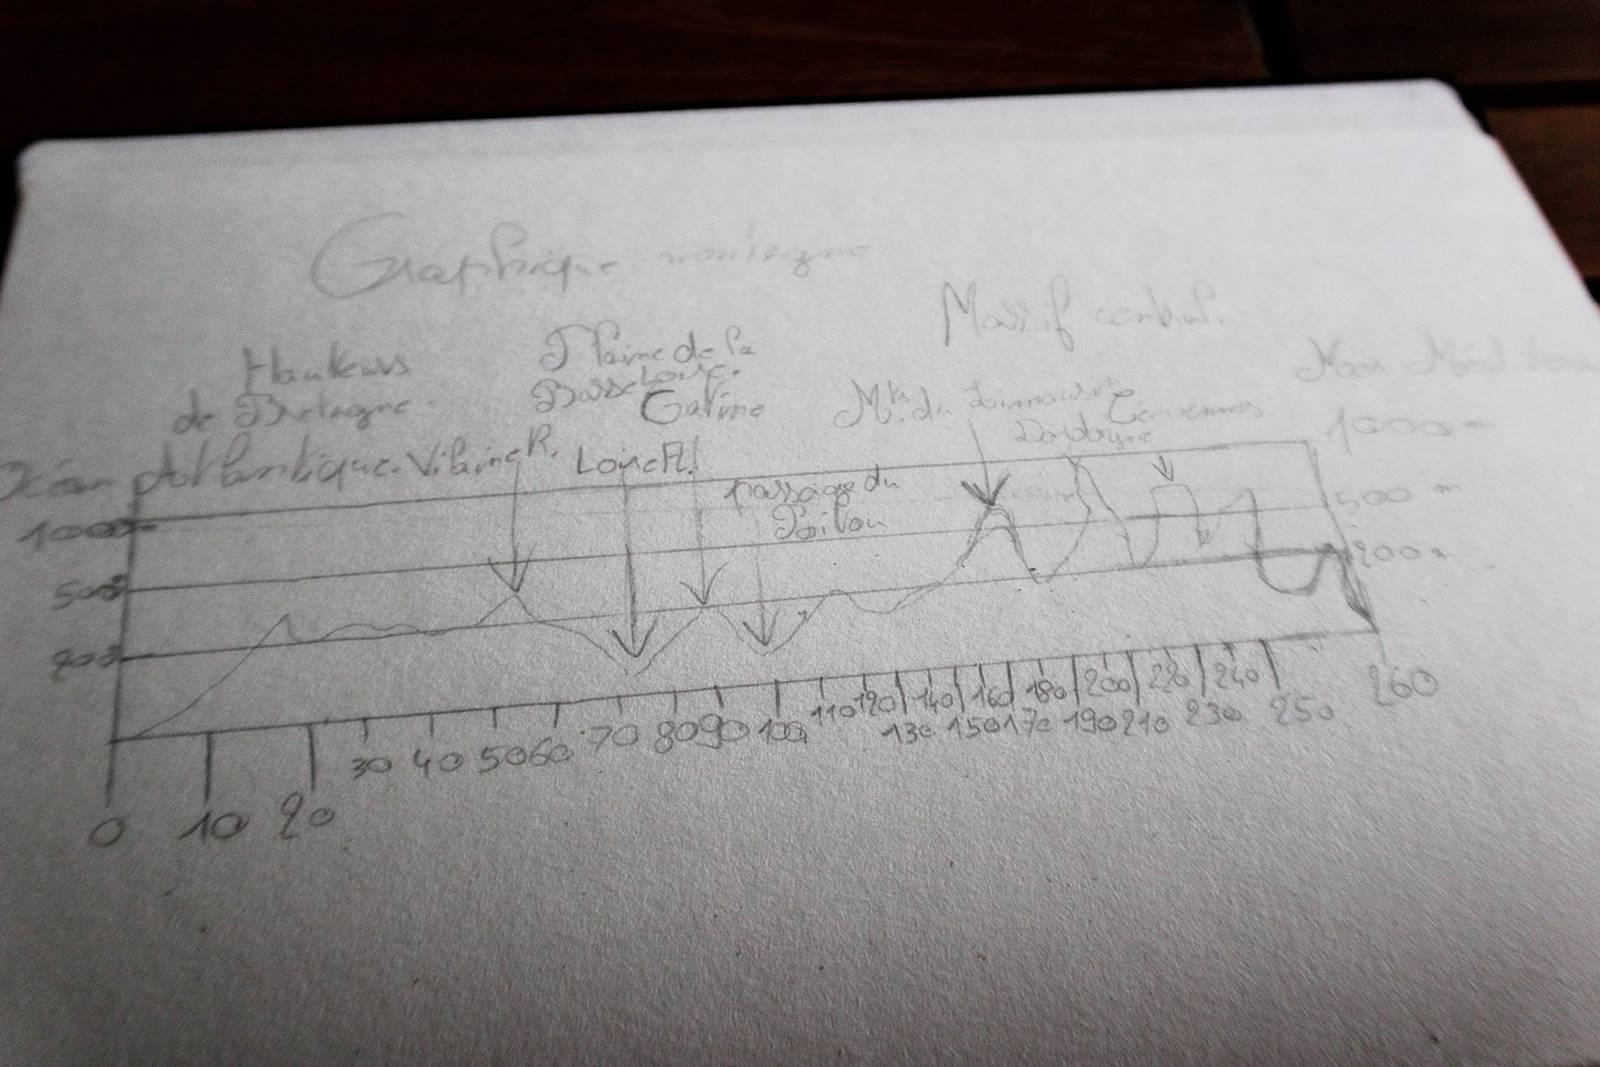 Graphique montagne
Massif central.
Hauteurs
de Bretagne.
Plaine de la
Basse Loire.
Gatine
Mts du Limousin
Dordogne
Cevennes
Océan Atlantique. Vilaine R.
Loire Fl.
passage du
Poitou
1000
500
200
1000 m
500 m
200 m
0 10 20 30 40 50 60 70 80 90 100 110 120 130 140 150 160 170 180 190 200 210 220 230 240 250 260